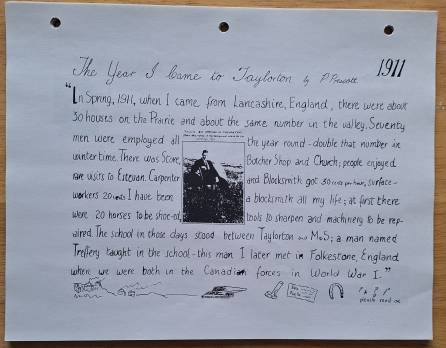 The Year I Came to Taylorton by P Prescott
1911
"In Spring, 1911, when I came from Lancashire, England, there were about
30 houses on the Prairie and about the same number in the valley. Seventy
men were employed all the year round - double that number in
winter time. There was Store, Butcher Shop and Church; people enjoyed
rare visits to Estevan. Carpenter and Blacksmith got 30 cents per hour, surface-
workers 20 cents I have been a blacksmith all my life; at first there
were 20 horses to be shoe-ed, tools to sharpen and machinery to be rep-
aired. The school in those days stood between Taylorton and M&S; a man named
Treffery taught in the school - this man I later met in Folkestone, England
where we were both in the Canadian forces in World War I."
please read on